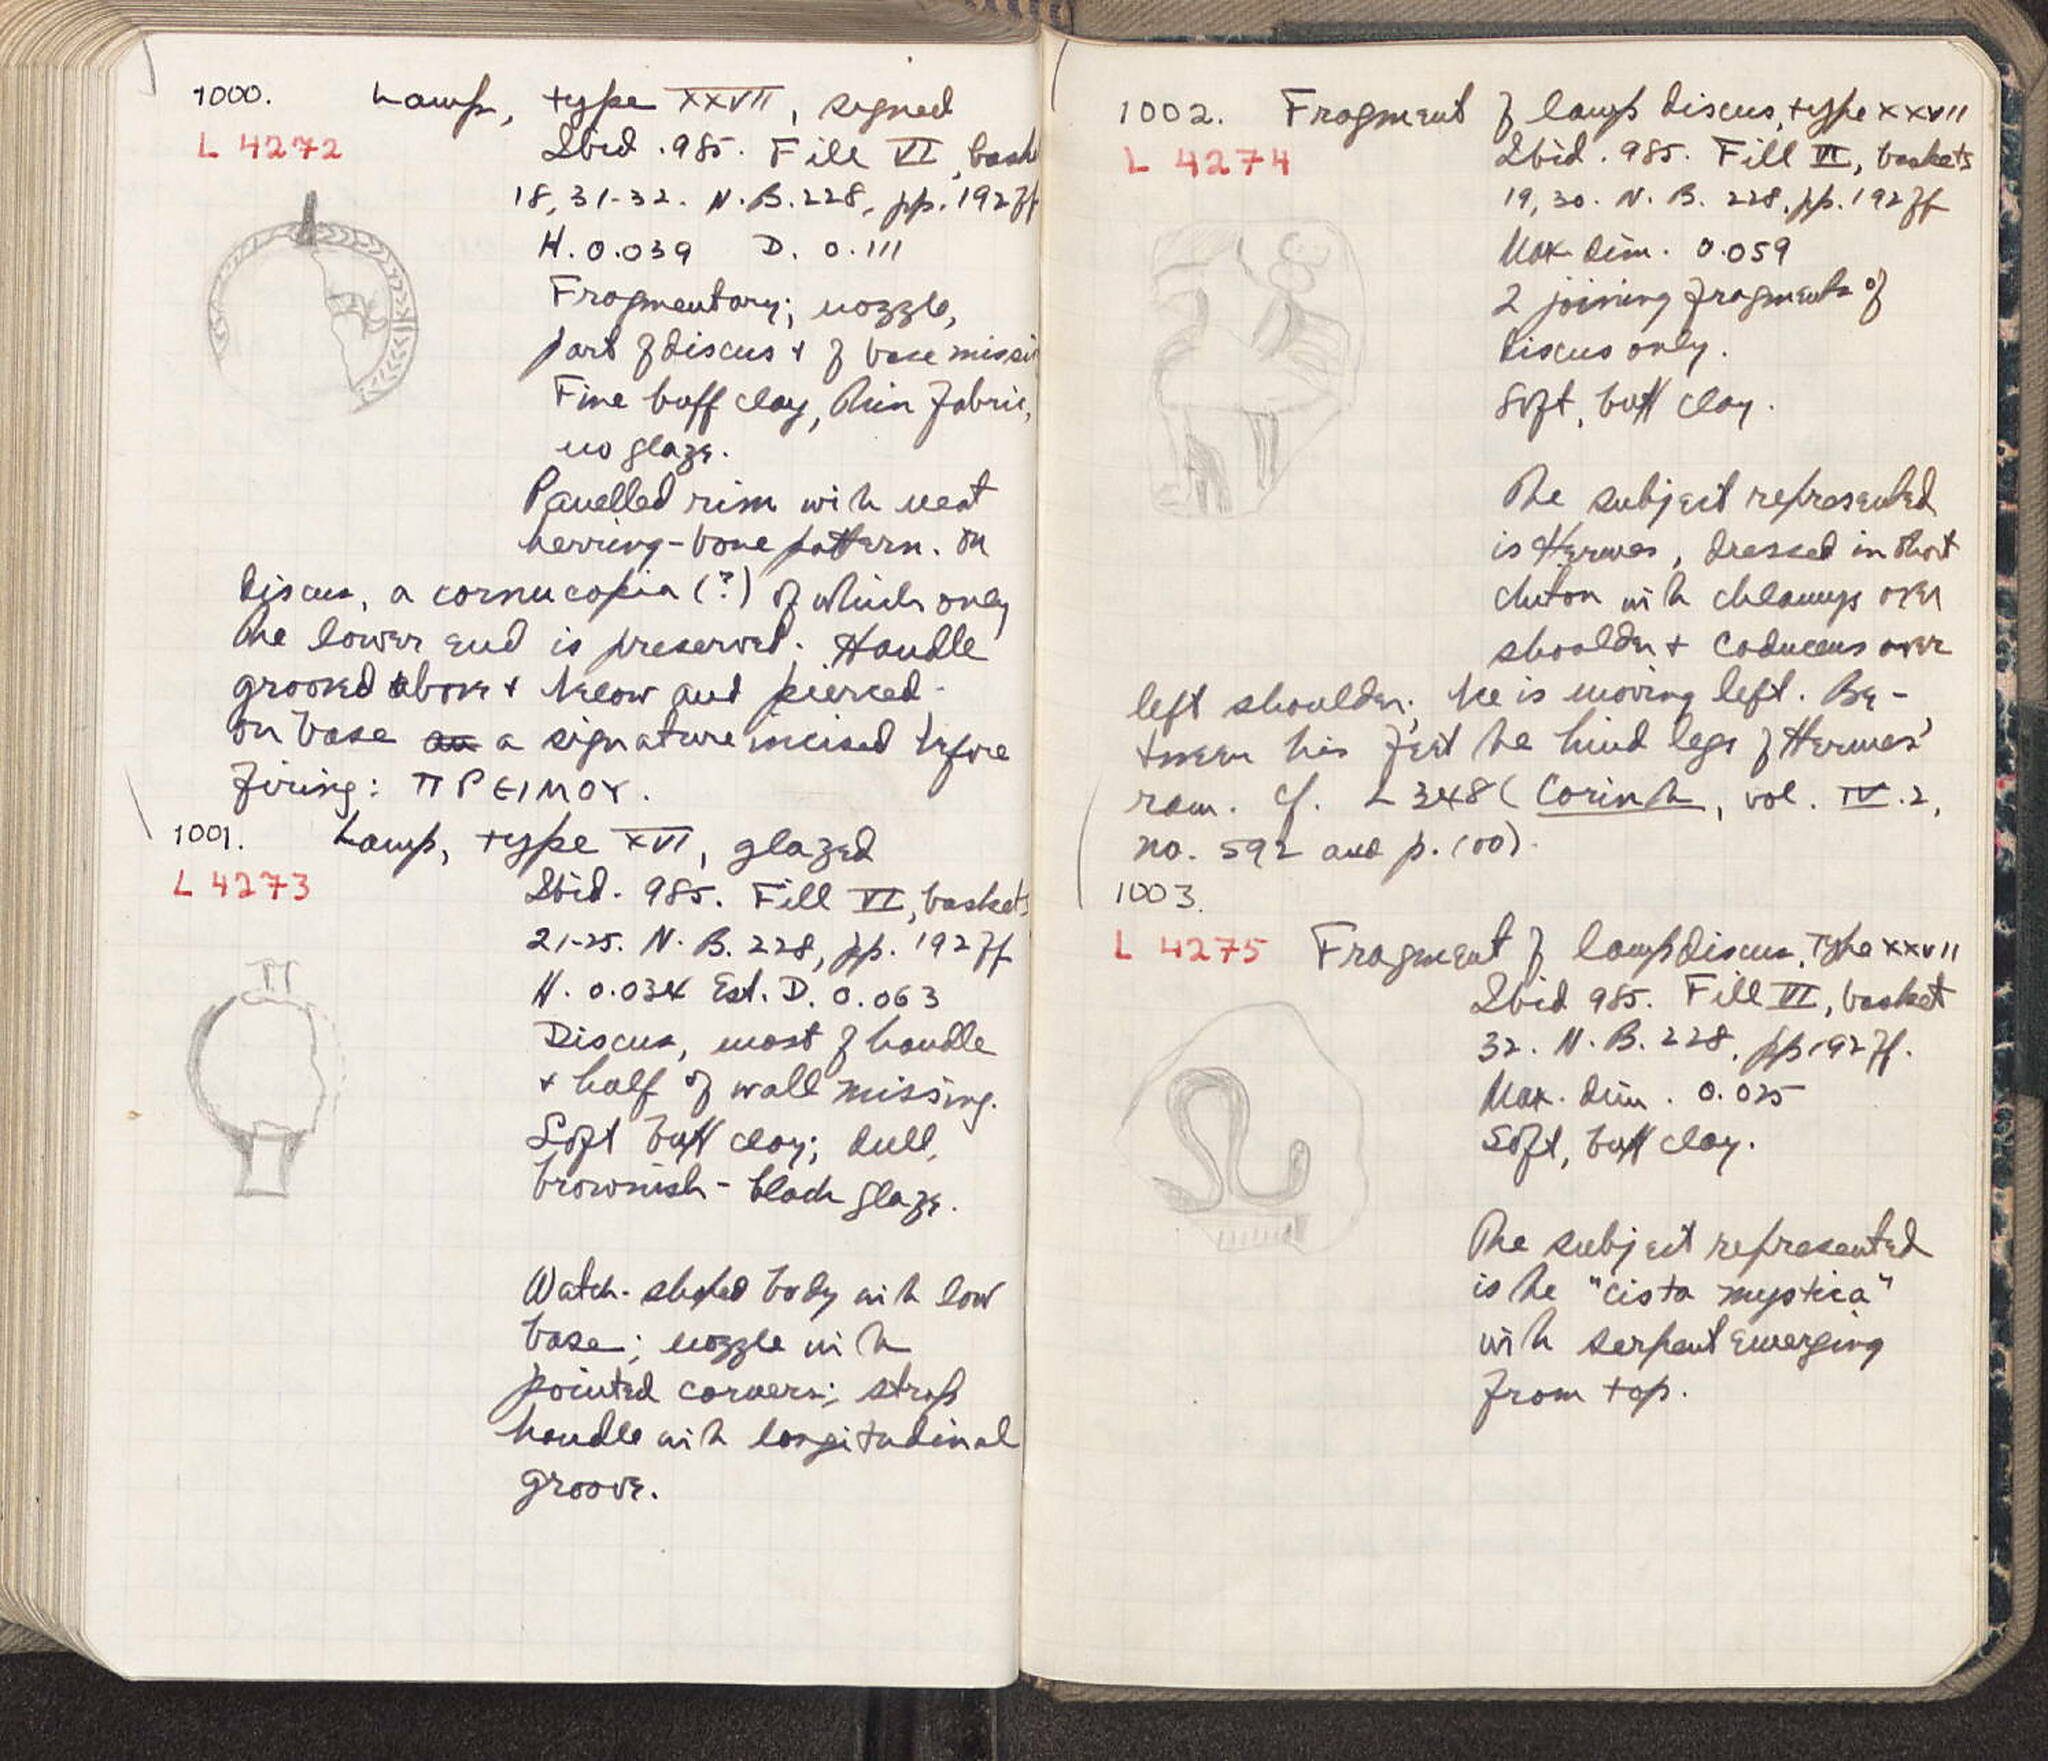 1000. Lamp, type XXVII, signed
L 4272 Ibid. 985. Fill VI, bask
18, 31-32. N.B. 228, pp. 192 ff
H. 0.039 D. 0.111
Fragmentary; nozzle,
part of discus + of base missi
Fine buff clay, thin fabric,
no glaze.
Panelled rim with neat
herring-bone pattern. On
discus, a cornucopia (?) of which only
the lower end is preserved. Handle
grooved above + below and pierced.
On base a signature incised before
firing: ΠΡΕΙΜΟΥ.
1001. Lamp, type XVI, glazed
L 4273 Ibid. 985. Fill VI, baskets
21-25. N.B. 228, pp. 192 ff
H. 0.034 Est. D. 0.063
Discus, most of handle
+ half of wall missing.
Soft buff clay; dull,
brownish-black glaze.
Watch-shaped body with low
base; nozzle with
pointed corners; strap
handle with longitudinal
groove.
1002. Fragment of lamp discus, type XXVII
L 4274 Ibid. 985. Fill VI, baskets
19, 30. N.B. 228, pp. 192 ff
Max. dim. 0.059
2 joining fragments of
discus only.
Soft, buff clay.
The subject represented
is Hermes, dressed in short
chiton with chlamys over
shoulder + caduceus over
left shoulder; he is moving left. Be-
tween his feet the hind legs of Hermes'
ram. Cf. L 348 (Corinth, vol. IV.2,
no. 592 and p. 100).
1003.
L 4275 Fragment of lamp discus, Type XXVII
Ibid 985. Fill VI, basket
32. N.B. 228, pp 192 ff.
Max. dim. 0.025
Soft, buff clay.
The subject represented
is the "cista mystica"
with serpent emerging
from top.